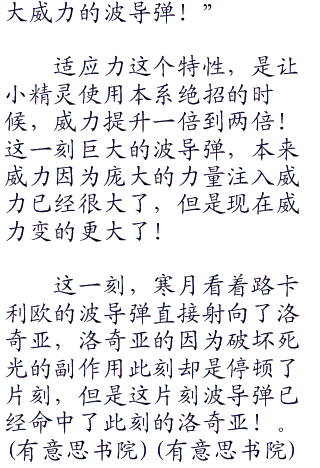 大威力的波导弹！”
适应力这个特性，是让
小精灵使用本系绝招的时
候，威力提升一倍到两倍！
这一刻巨大的波导弹，本来
威力因为庞大的力量注入威
力已经很大了，但是现在威
力变的更大了！
这一刻，寒月看着路卡
利欧的波导弹直接射向了洛
奇亚，洛奇亚的因为破坏死
光的副作用此刻却是停顿了
片刻，但是这片刻波导弹已
经命中了此刻的洛奇亚！。
(有意思书院)(有意思书院)